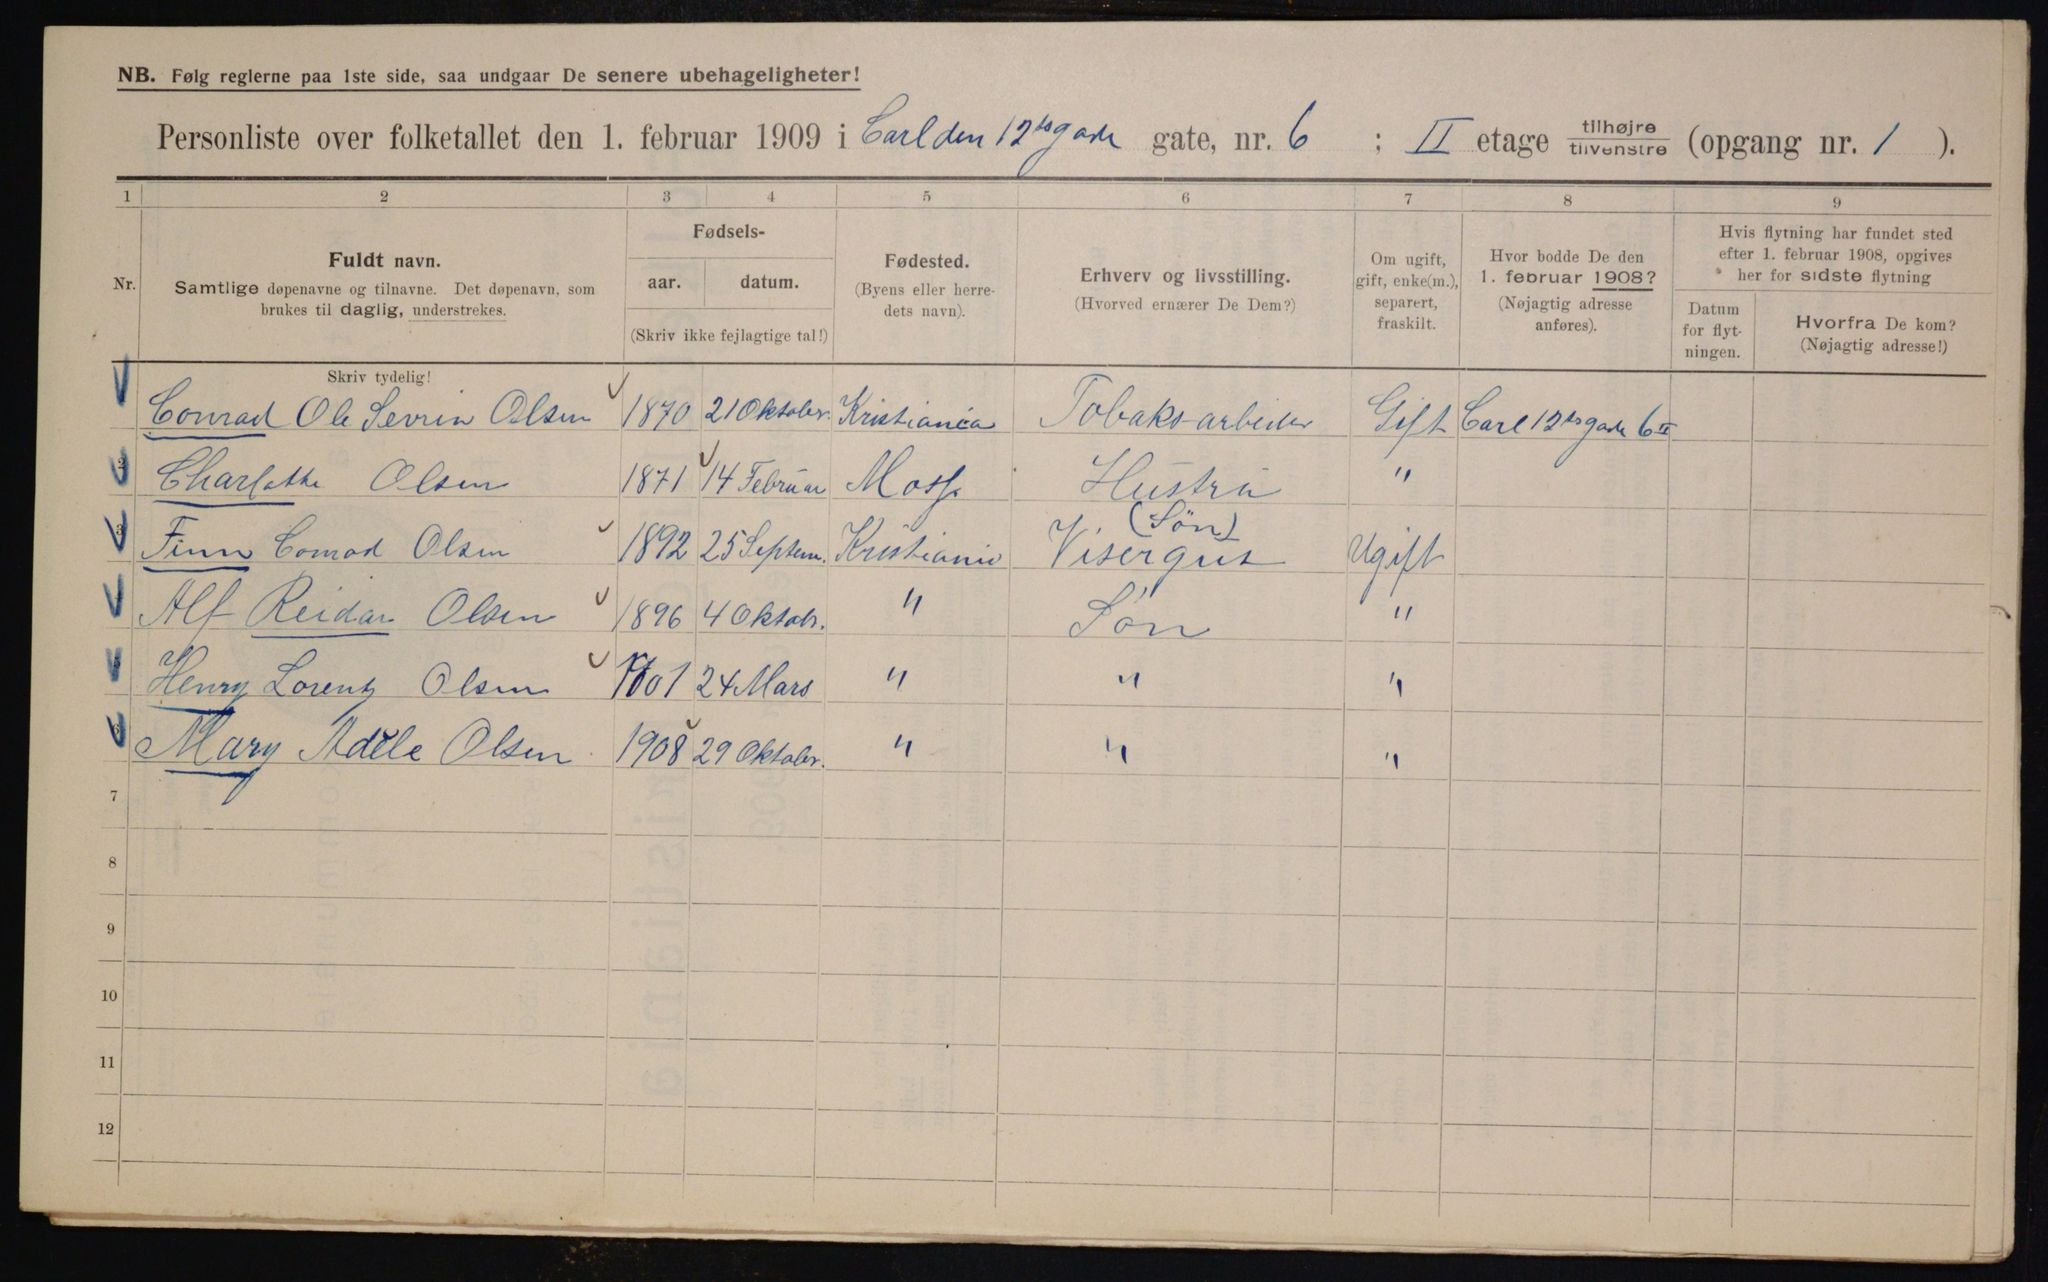 NB. Følg reglerne paa 1ste side, saa undgaar De senere ubehageligheter!
Personliste over folketallet den 1. februar 1909 i Carl den 12tes gade gate, nr. 6 ; II etage tilhøjre/tilvenstre (opgang nr. 1 ).
1 2 3 4 5 6 7 8 9
Nr.
Fuldt navn.
Samtlige døpenavne og tilnavne. Det døpenavn, som
brukes til daglig, understrekes.
Skriv tydelig!
Fødsels-
aar. datum.
(Skriv ikke fejlagtige tal!)
Fødested.
(Byens eller herre-
dets navn).
Erhverv og livsstilling.
(Hvorved ernærer De Dem?)
Om ugift,
gift, enke(m.),
separert,
fraskilt.
Hvor bodde De den
1. februar 1908?
(Nøjagtig adresse
anføres).
Hvis flytning har fundet sted
efter 1. februar 1908, opgives
her for sidste flytning
Datum
for flyt-
ningen.
Hvorfra De kom?
(Nøjagtig adresse!)
Conrad Ole Sevrin Olsen 1870 21 Oktober. Kristiania Tobaks-arbeider Gift Carl 12tes gade 6 II
2 Charlotte Olsen 1871 14 Februar Moss Hustru "
3 Finn Conrad Olsen 1892 25 Septem. Kristiania (Søn) Visergut Ugift
4 Alf Reidar Olsen 1896 4 Oktobr. " Søn "
5 Henry Lorentz Olsen 1901 24 Mars " " "
6 Mary Adèle Olsen 1908 29 Oktober. " " "
7
8
9
10
11
12